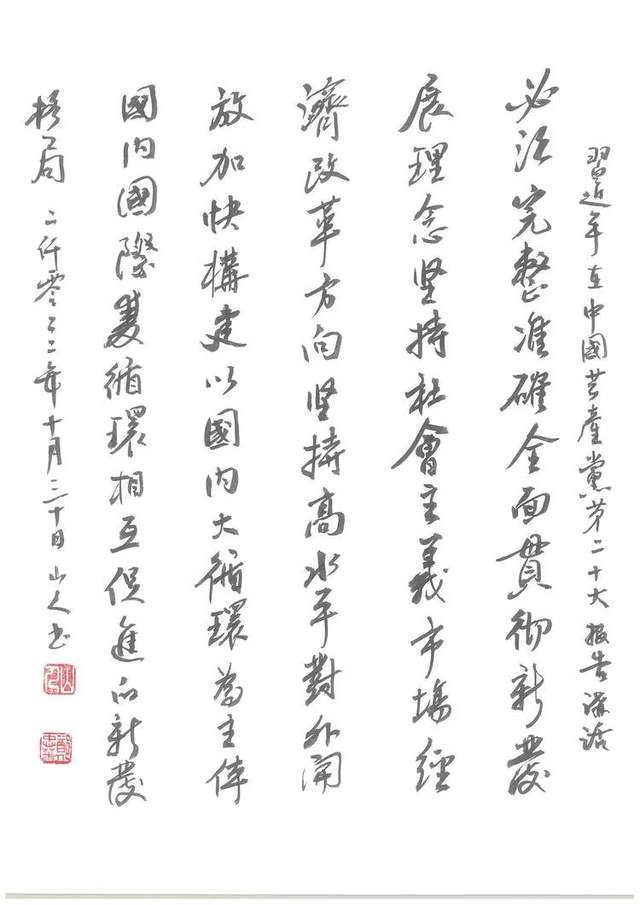 習近平在中國共產黨第二十大報告講話
必须完整准確全面貫彻新發
展理念坚持社會主義市場經
濟改革方向坚持高水平對外開
放加快構建以國内大循環為主体
國内國際雙循環相互促進的新發
格局 二仟零二二年十月三十日山人书